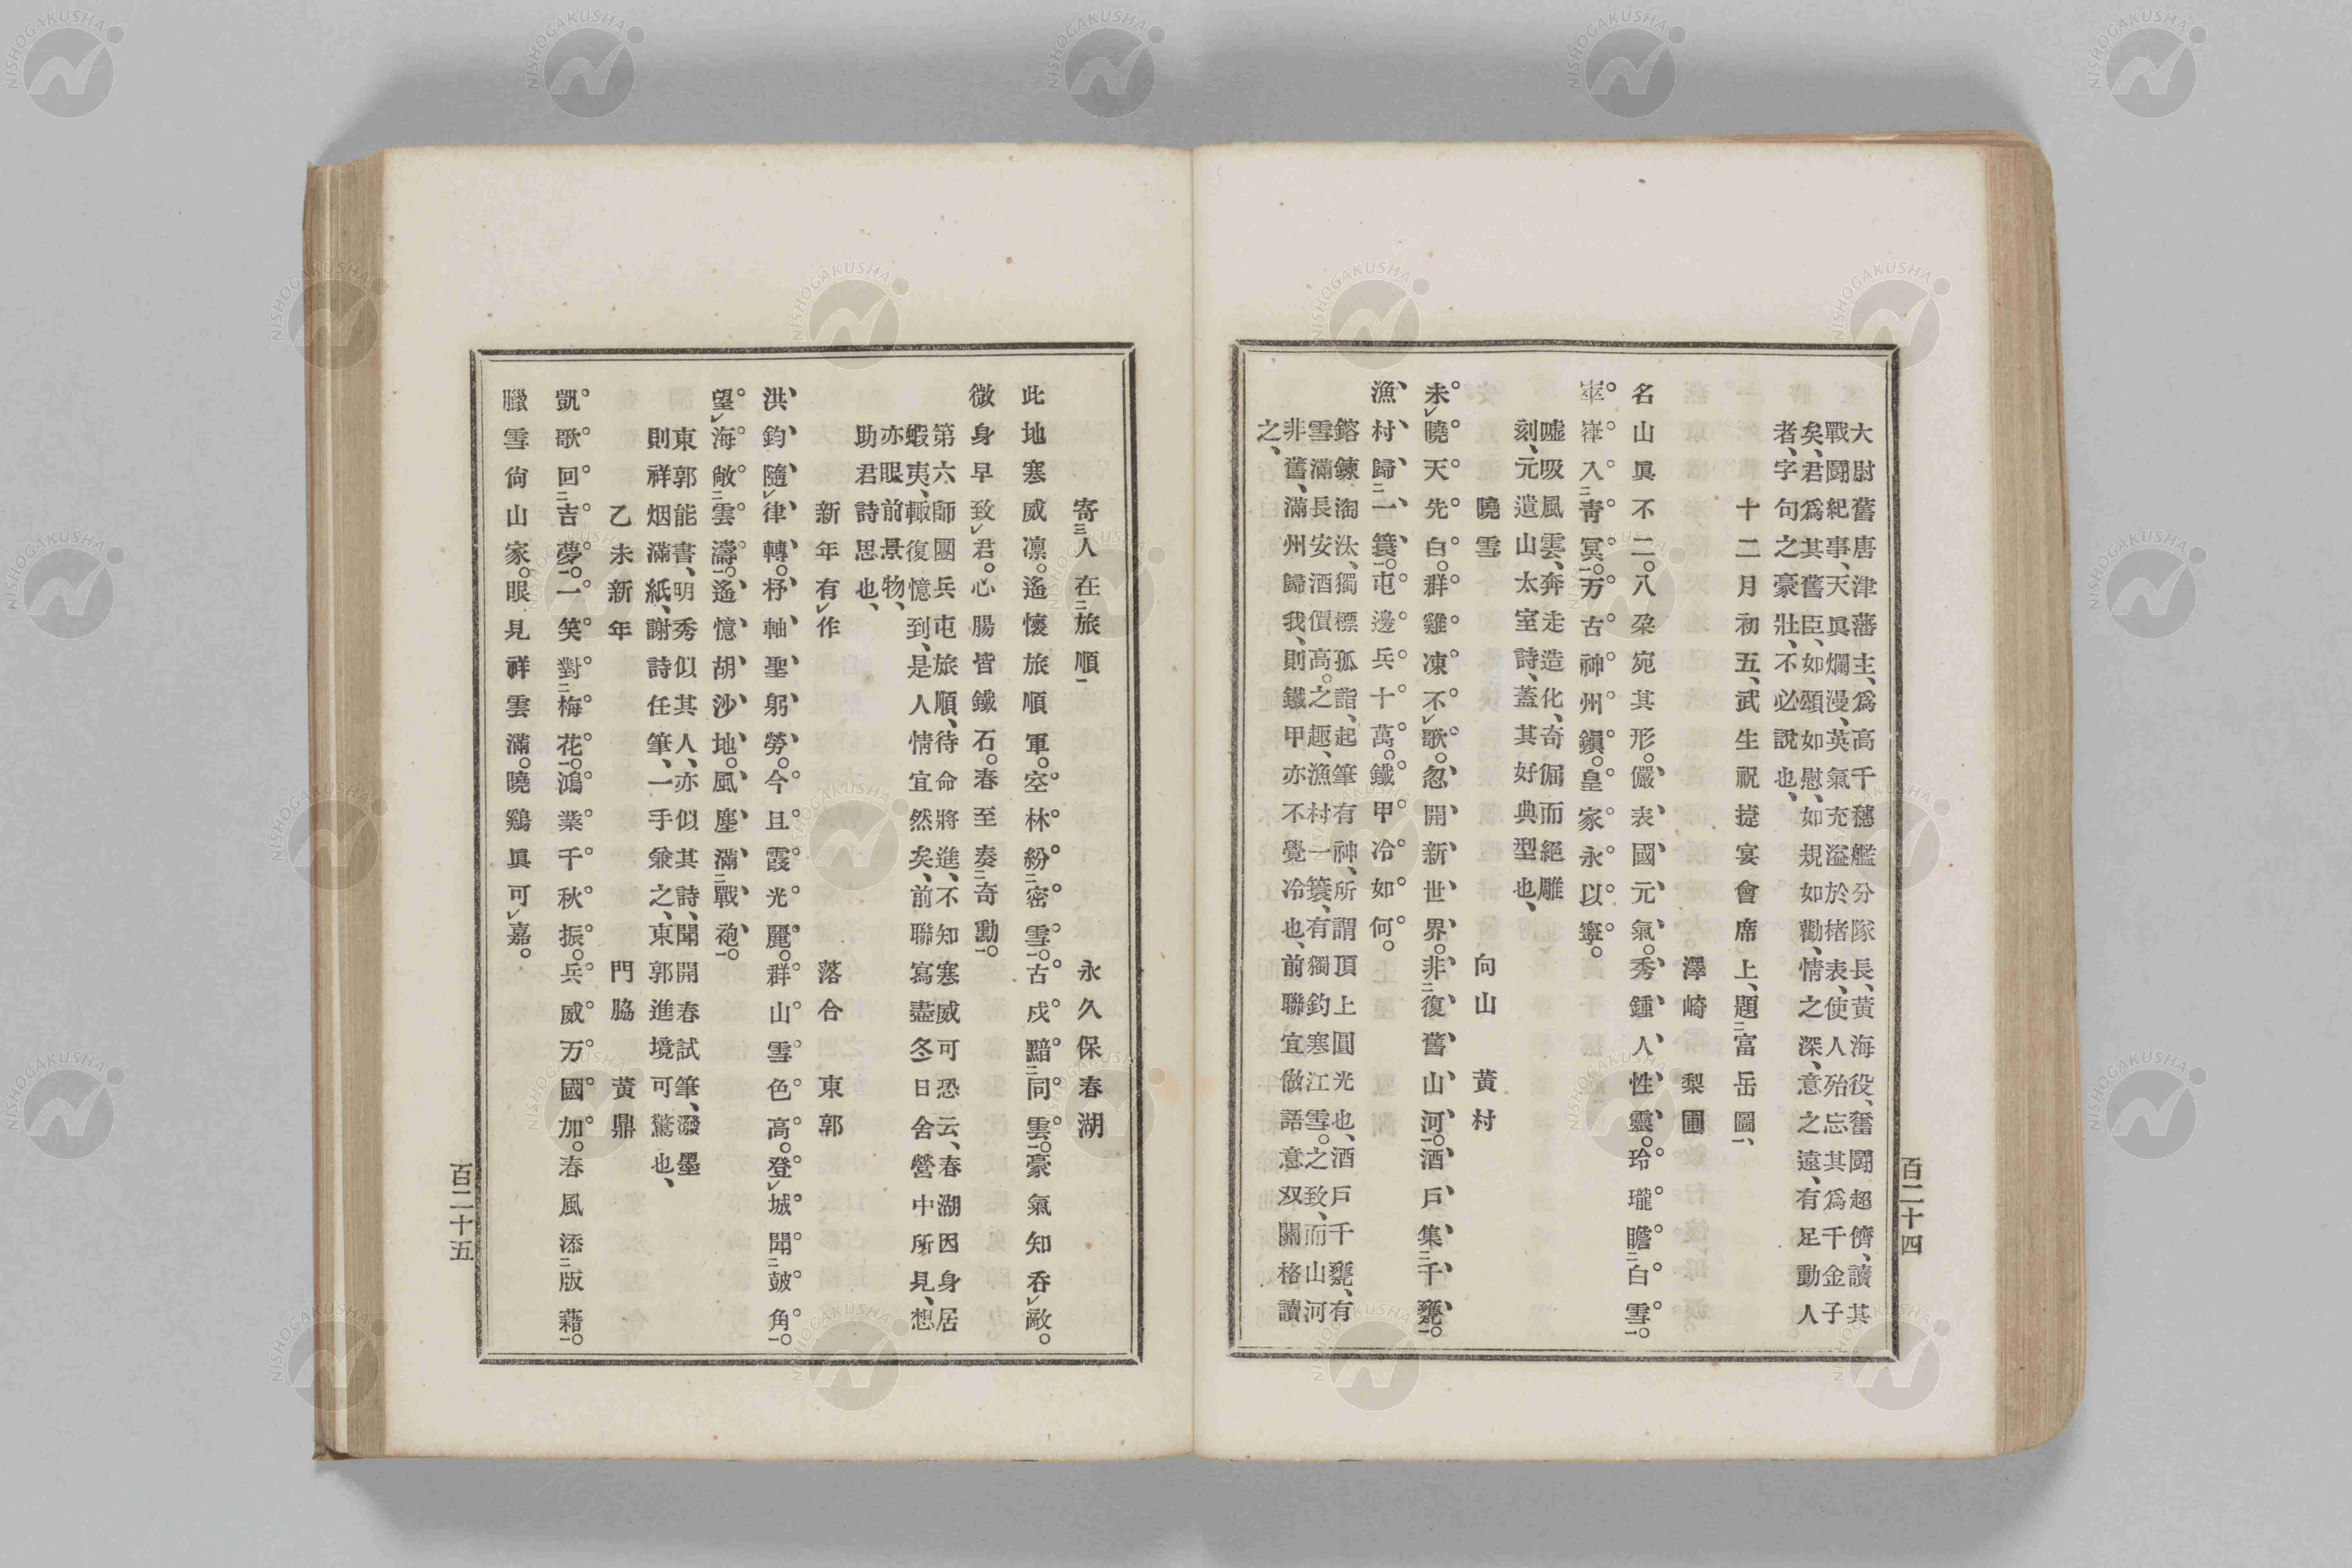 大尉舊唐津藩主、爲高千穗艦分隊長、黃海役、奮鬪超儕、讀其
戰鬪紀事、天眞爛漫、英氣充溢於楮表、使人殆忘其爲千金子
矣、君爲其舊臣、如頌如慰、如規如勸、情之深、意之遠、有足動人
者、字句之豪壯、不必說也、
十二月初五、武生祝捷宴會席上、題二富岳圖一、
澤崎梨圃
名山眞不二。八朶宛其形。儼表國元氣。秀鍾人性靈。玲瓏瞻二白雪一。
崒嵂入二靑冥一。万古神州鎭。皇家永以寧。
噓吸風雲、奔走造化、奇倔而絕雕
刻、元遺山太室詩、蓋其好典型也、
曉雪 向山黃村
未曉天先白。群雞凍不歌。忽開新世界。非二復舊山河一。酒戶集二千甕一。
漁村歸二一簑一。屯邊兵十萬。鐵甲冷如何。
鎔鍊淘汰、獨標孤詣、起筆有神、所謂頂上圓光也、酒戶千甕、有
雪滿長安酒價高。之趣、漁村一簑、有獨釣寒江雪。之致、而山河
非舊、滿州歸我、則鐵甲亦不覺冷也、前聯宜倣語意双關格讀
之、
百二十四
寄三人在二旅順一 永久保春湖
此地塞威凛。遙懷旅順軍。空林紛二密雪一。古戍黯二同雲一。豪氣知呑敵。
微身早致君。心腸皆鐵石。春至奏二奇勳一。
第六師團兵屯旅順、待命將進、不知寒威可恐云、春湖因身居
蝦夷、輙復憶到、是人情宜然矣、前聯寫盡冬日舍營中所見、想
亦眼前景物、
助君詩思也、
新年有作 落合東郭
洪鈞隨律轉。杼軸聖躬勞。今且霞光麗。群山雪色高。登城聞二皷角一。
望海敞二雲濤一。遙憶胡沙地。風塵滿二戰袍一。
東郭能書、明秀似其人、亦似其詩、聞開春試筆、潑墨
則祥烟滿紙、謝詩任筆、一手兼之、東郭進境可驚也、
乙未新年 門脇黃鼎
凱歌回二吉夢一。一笑對二梅花一。鴻業千秋振。兵威万國加。春風添二版藉一。
臘雪尙山家。眼見祥雲滿。曉鷄眞可嘉。
百二十五